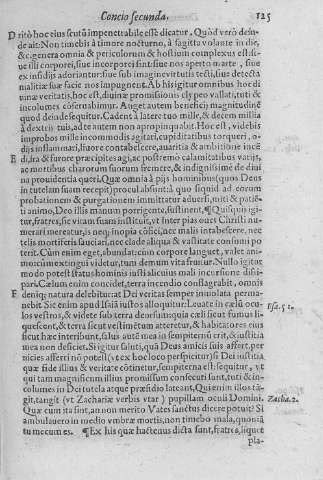 Concio secunda. 125
D ritò hoc eius scutũ impenetrabile esse dicatur. Quòd verò dein-
de ait: Non timebis à timore nocturno, à sagitta volante in die,
&c. genera omnia & periculorum & hostium complexus est: si-
ue illi corporei, siue incorporei sint: siue nos aperto marte, siue
ex insidijs adoriantur: siue sub imagine virtutis tecti, siue detecta
malitia suæ facie nos impugnent. Ab his igitur omnibus hoc di
uinæ veritatis, hoc est, diuinæ promissionis clypeo vallati, tuti &
incolumes cõseruabimur. Auget autem beneficij magnitudinẽ
quod deinde sequitur. Cadent à latere tuo mille, & decem millia
à dextris tuis, ad te autem non appropinquabit. Hoc est, videbis
improbos mille incommodis agitari, cupiditatibus torqueri, o-
dijs inflammari, liuore contabescere, auaritia & ambitione incẽ
E di, ira & furore præcipites agi, ac postremo calamitatibus varijs,
ac mortibus charorum suorum fremere, & indignissimè de diui
na prouidentia queri. Quæ omnia à pijs hominibus (quos Deus
in tutelam suam recepit) procul absunt: à quo siquid ad eorum
probationem & purgationem immittatur aduersi, miti & patiẽ-
ti animo, Deo illis manum porrigente, sustinent. ¶ Quisquis igi-
tur, fratres, sic vitam suam instituit, vt inter pias oues Christi nu-
merari mereatur, is neq; inopia cõfici, nec malis intabescere, nec
telis mortiferis sauciari, nec clade aliqua & vastitate consumi po
terit. Cùm enim eget, abundat: cùm corpore languet, valet ani-
mo: cùm extingui videtur, tum demum vita fruitur. Nullo igitur
modo potest status hominis iusti alicuius mali incursione dissi-
pari. Cælum enim concidet, terra incendio conflagrabit, omnis
F deniq; natura delebitur: at Dei veritas semper inuiolata perma-
nebit. Sic enim apud Isaiã iustos alloquitur: Leuate in cælũ ocu-
los vestros, & videte sub terra deorsum: quia cæli sicut fumus li-
quescent, & terra sicut vestimẽtum atteretur, & habitatores eius
sicut hæc interibunt, salus autẽ mea in sempiternũ erit, & iustitia
mea non deficiet. Si igitur saluti, quã Deus amicis suis affert, per
nicies afferri nõ potest (vt ex hoc loco perspicitur) si Dei iustitia
quæ fide illius & veritate cõtinetur, sempiterna est: sequitur, vt
qui tam magnificum illius promissum consecuti sunt, tuti & in-
columes in Dei tutela atque præsidio lateant. Qui enim illos tã-
git, tangit (vt Zachariæ verbis vtar) pupillam oculi Domini.
Quæ cum ita sint, an non merito Vates sanctus dicere potuit? Si
ambulauero in medio vmbræ mortis, non timebo mala, quoniã
tu mecum es. ¶ Ex his quæ hactenus dicta sunt, fratres, liquet
pla-
Esa. 51.
Zacha. 2.